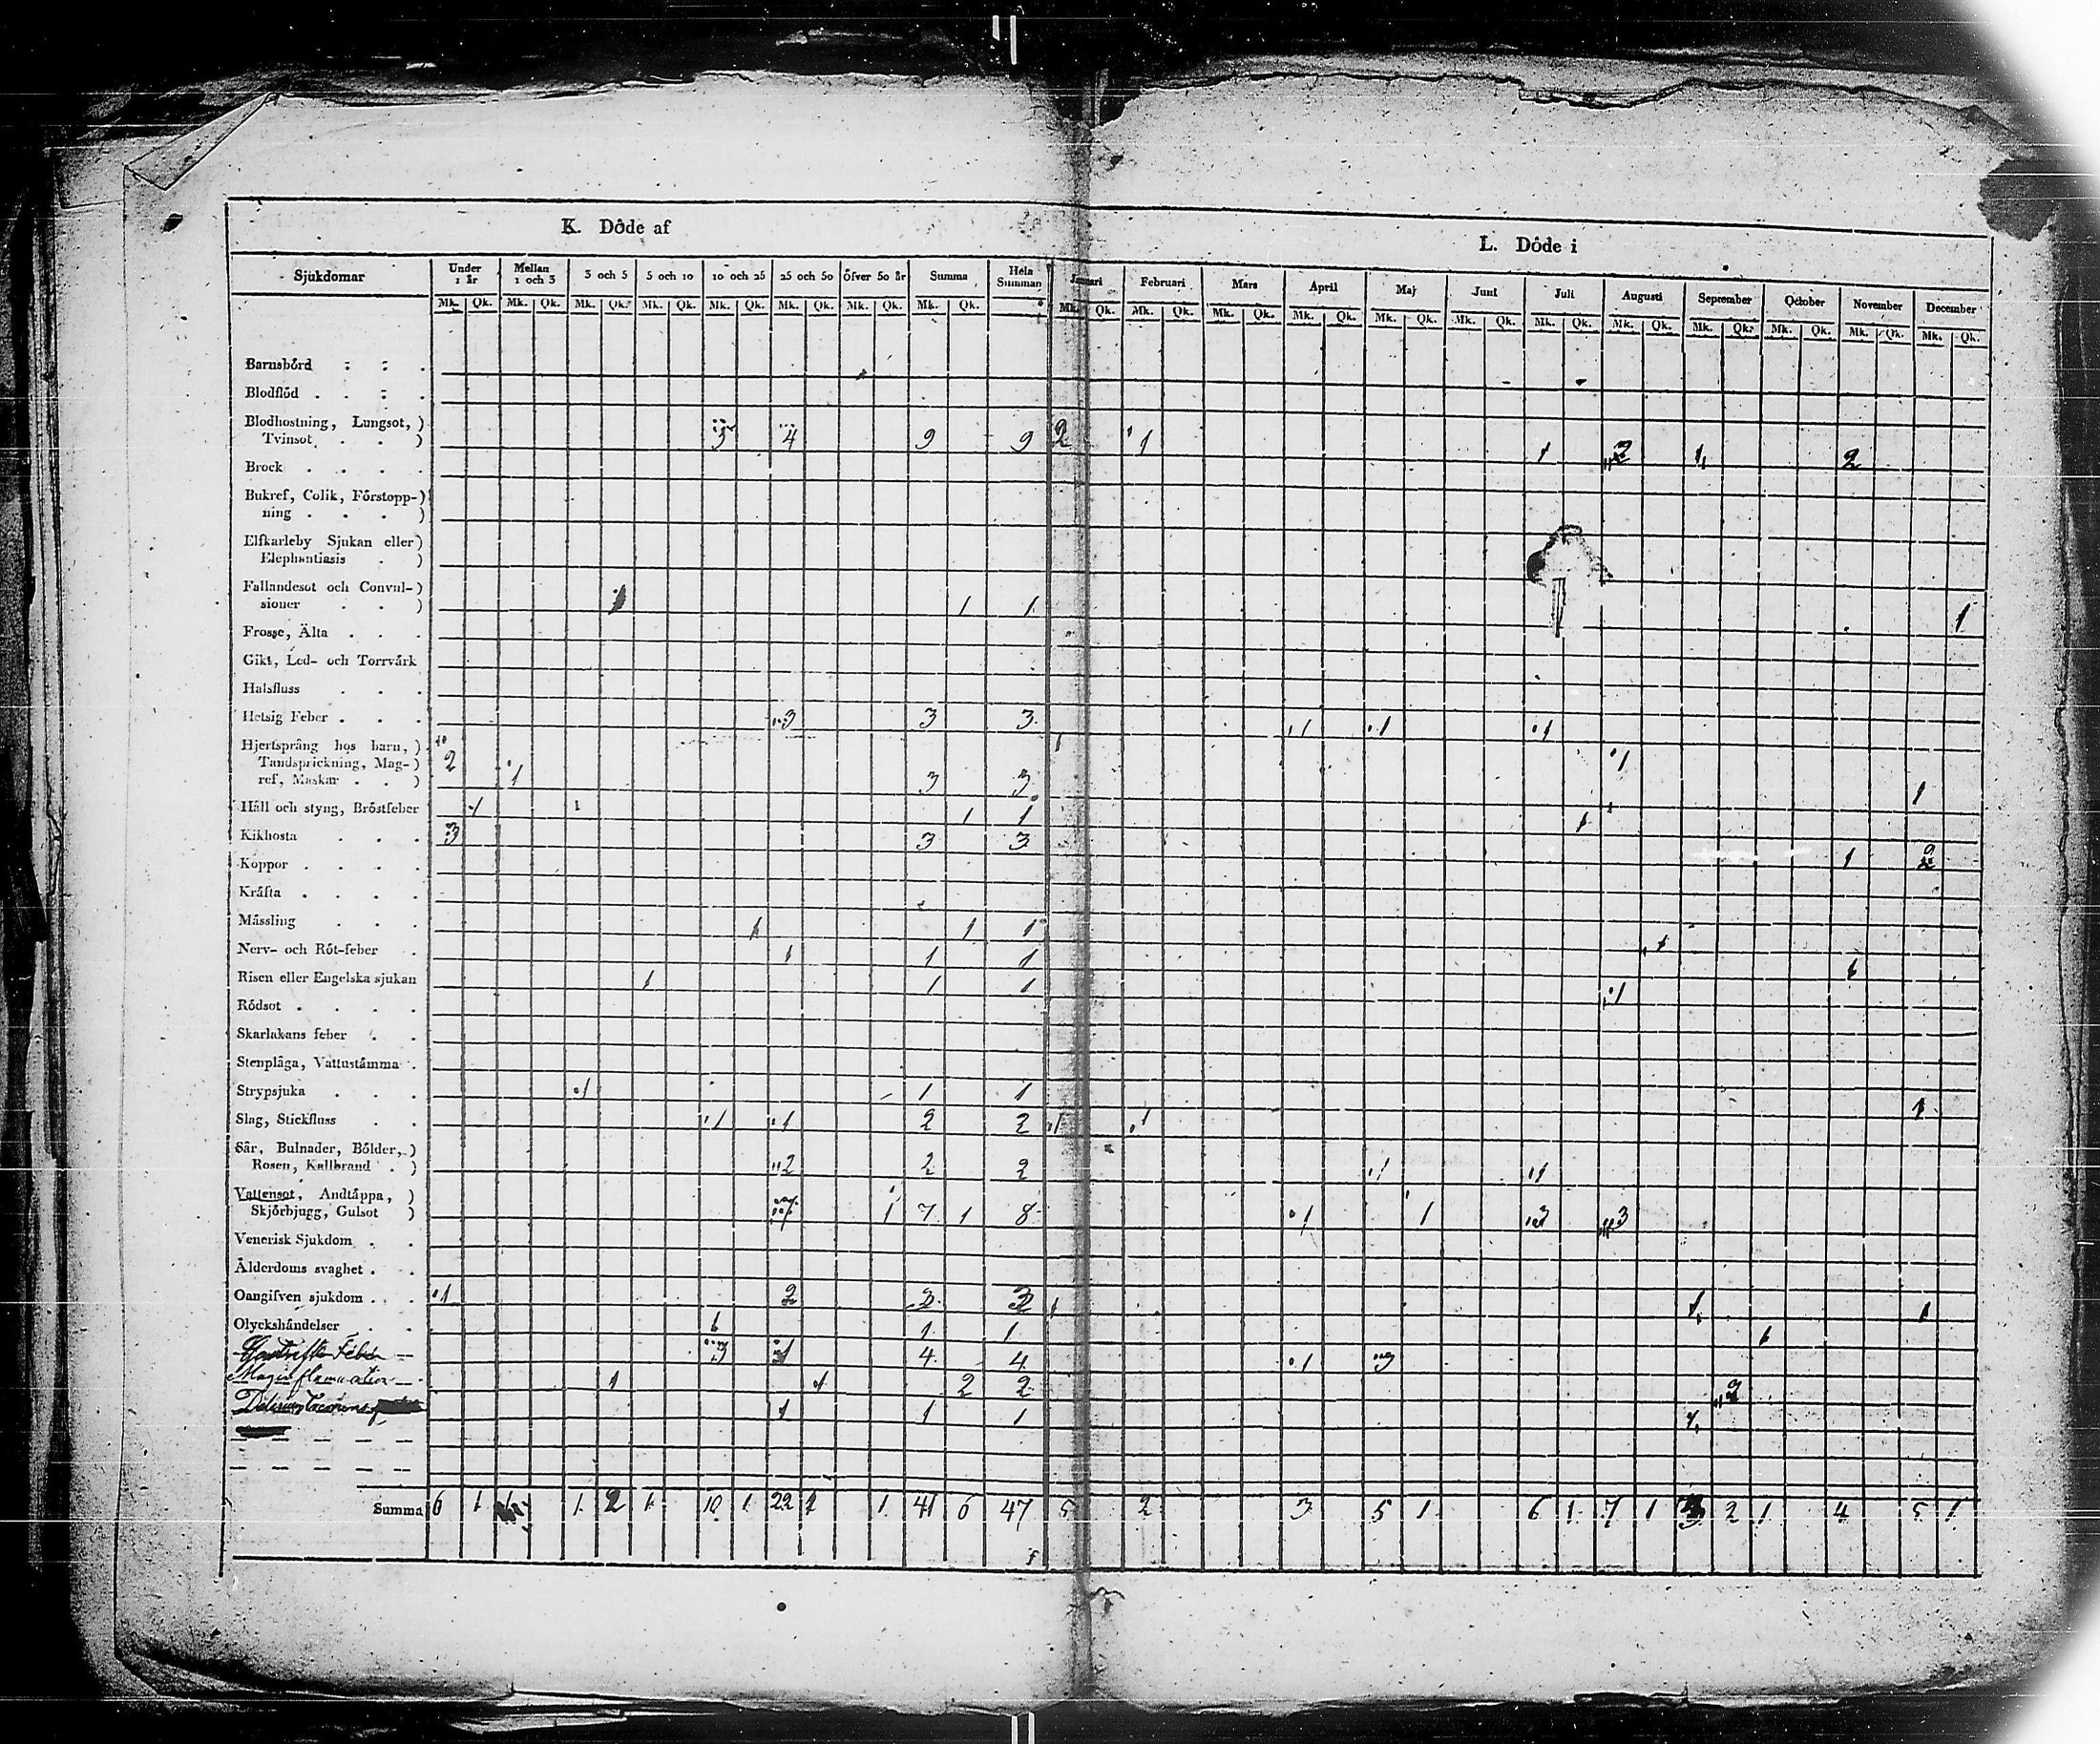 K. Döde af
L. Döde i
Sjukdomar Under 1 år Mellan 1 och 3 3 och 5 5 och 10 10 och 25 25 och 50 öfver 50 år Summa Hela Summan Januari Februari Mars April Maj Juni Juli Augusti September October November December
Mk. Qk. Mk. Qk. Mk. Qk. Mk. Qk. Mk. Qk. Mk. Qk. Mk. Qk. Mk. Qk. Mk. Qk. Mk. Qk. Mk. Qk. Mk. Qk. Mk. Qk. Mk. Qk. Mk. Qk. Mk. Qk. Mk. Qk. Mk. Qk. Mk. Qk. Mk. Qk.
Barnsbörd
Blodflöd
Blodhostning, Lungsot,)
Tvinsot ) 4 9 9 2 1 1 1 2
Brock
Bukref, Colik, Förstopp-)
ning )
Elfkarleby Sjukan eller)
Elephantiasis )
Fallandesot och Convul-)
sioner ) 1 1 1 1
Frosse, Älta
Gikt, Led- och Torrvärk
Halsfluss
Hetsig Feber 3 3 3 1 1 1
Hjertsprång hos barn, ) 1
Tandsprickning, Mag-) 2 1
ref, Maskar ) 1 3 3 1
Håll och styng, Bröstfeber 1 1 1 1
Kikhosta 3 3 3 1 2
Koppor
Kräfta
Mässling 1 1 1 1
Nerv- och Röt-feber 1 1 1 1
Risen eller Engelska sjukan 1 1 1 1
Rödsot
Skarlakans feber
Stenplåga, Vattustämma
Strypsjuka 1 1 1 1
Slag, Stickfluss 1 1 2 2 1 1
Sår, Bulnader, Bölder,)
Rosen, Kallbrand ) 2 2 2 1 1
Vattensot, Andtäppa, )
Skjörbjugg, Gulsot ) 7 1 7 1 8 1 1 3 3
Venerisk Sjukdom
Ålderdoms svaghet
Oangifven sjukdom 1 2 3 3 1 1 1
Olyckshändelser 1 1 1 1
Feber 3 1 4 4 1 3
Maginflammation 1 1 2 2 2
Delirium 1 1 1 1
Summa 6 1 1 2 1 10 1 22 1 1 41 6 47 5 2 3 5 1 6 1 7 1 3 2 1 4 5 1